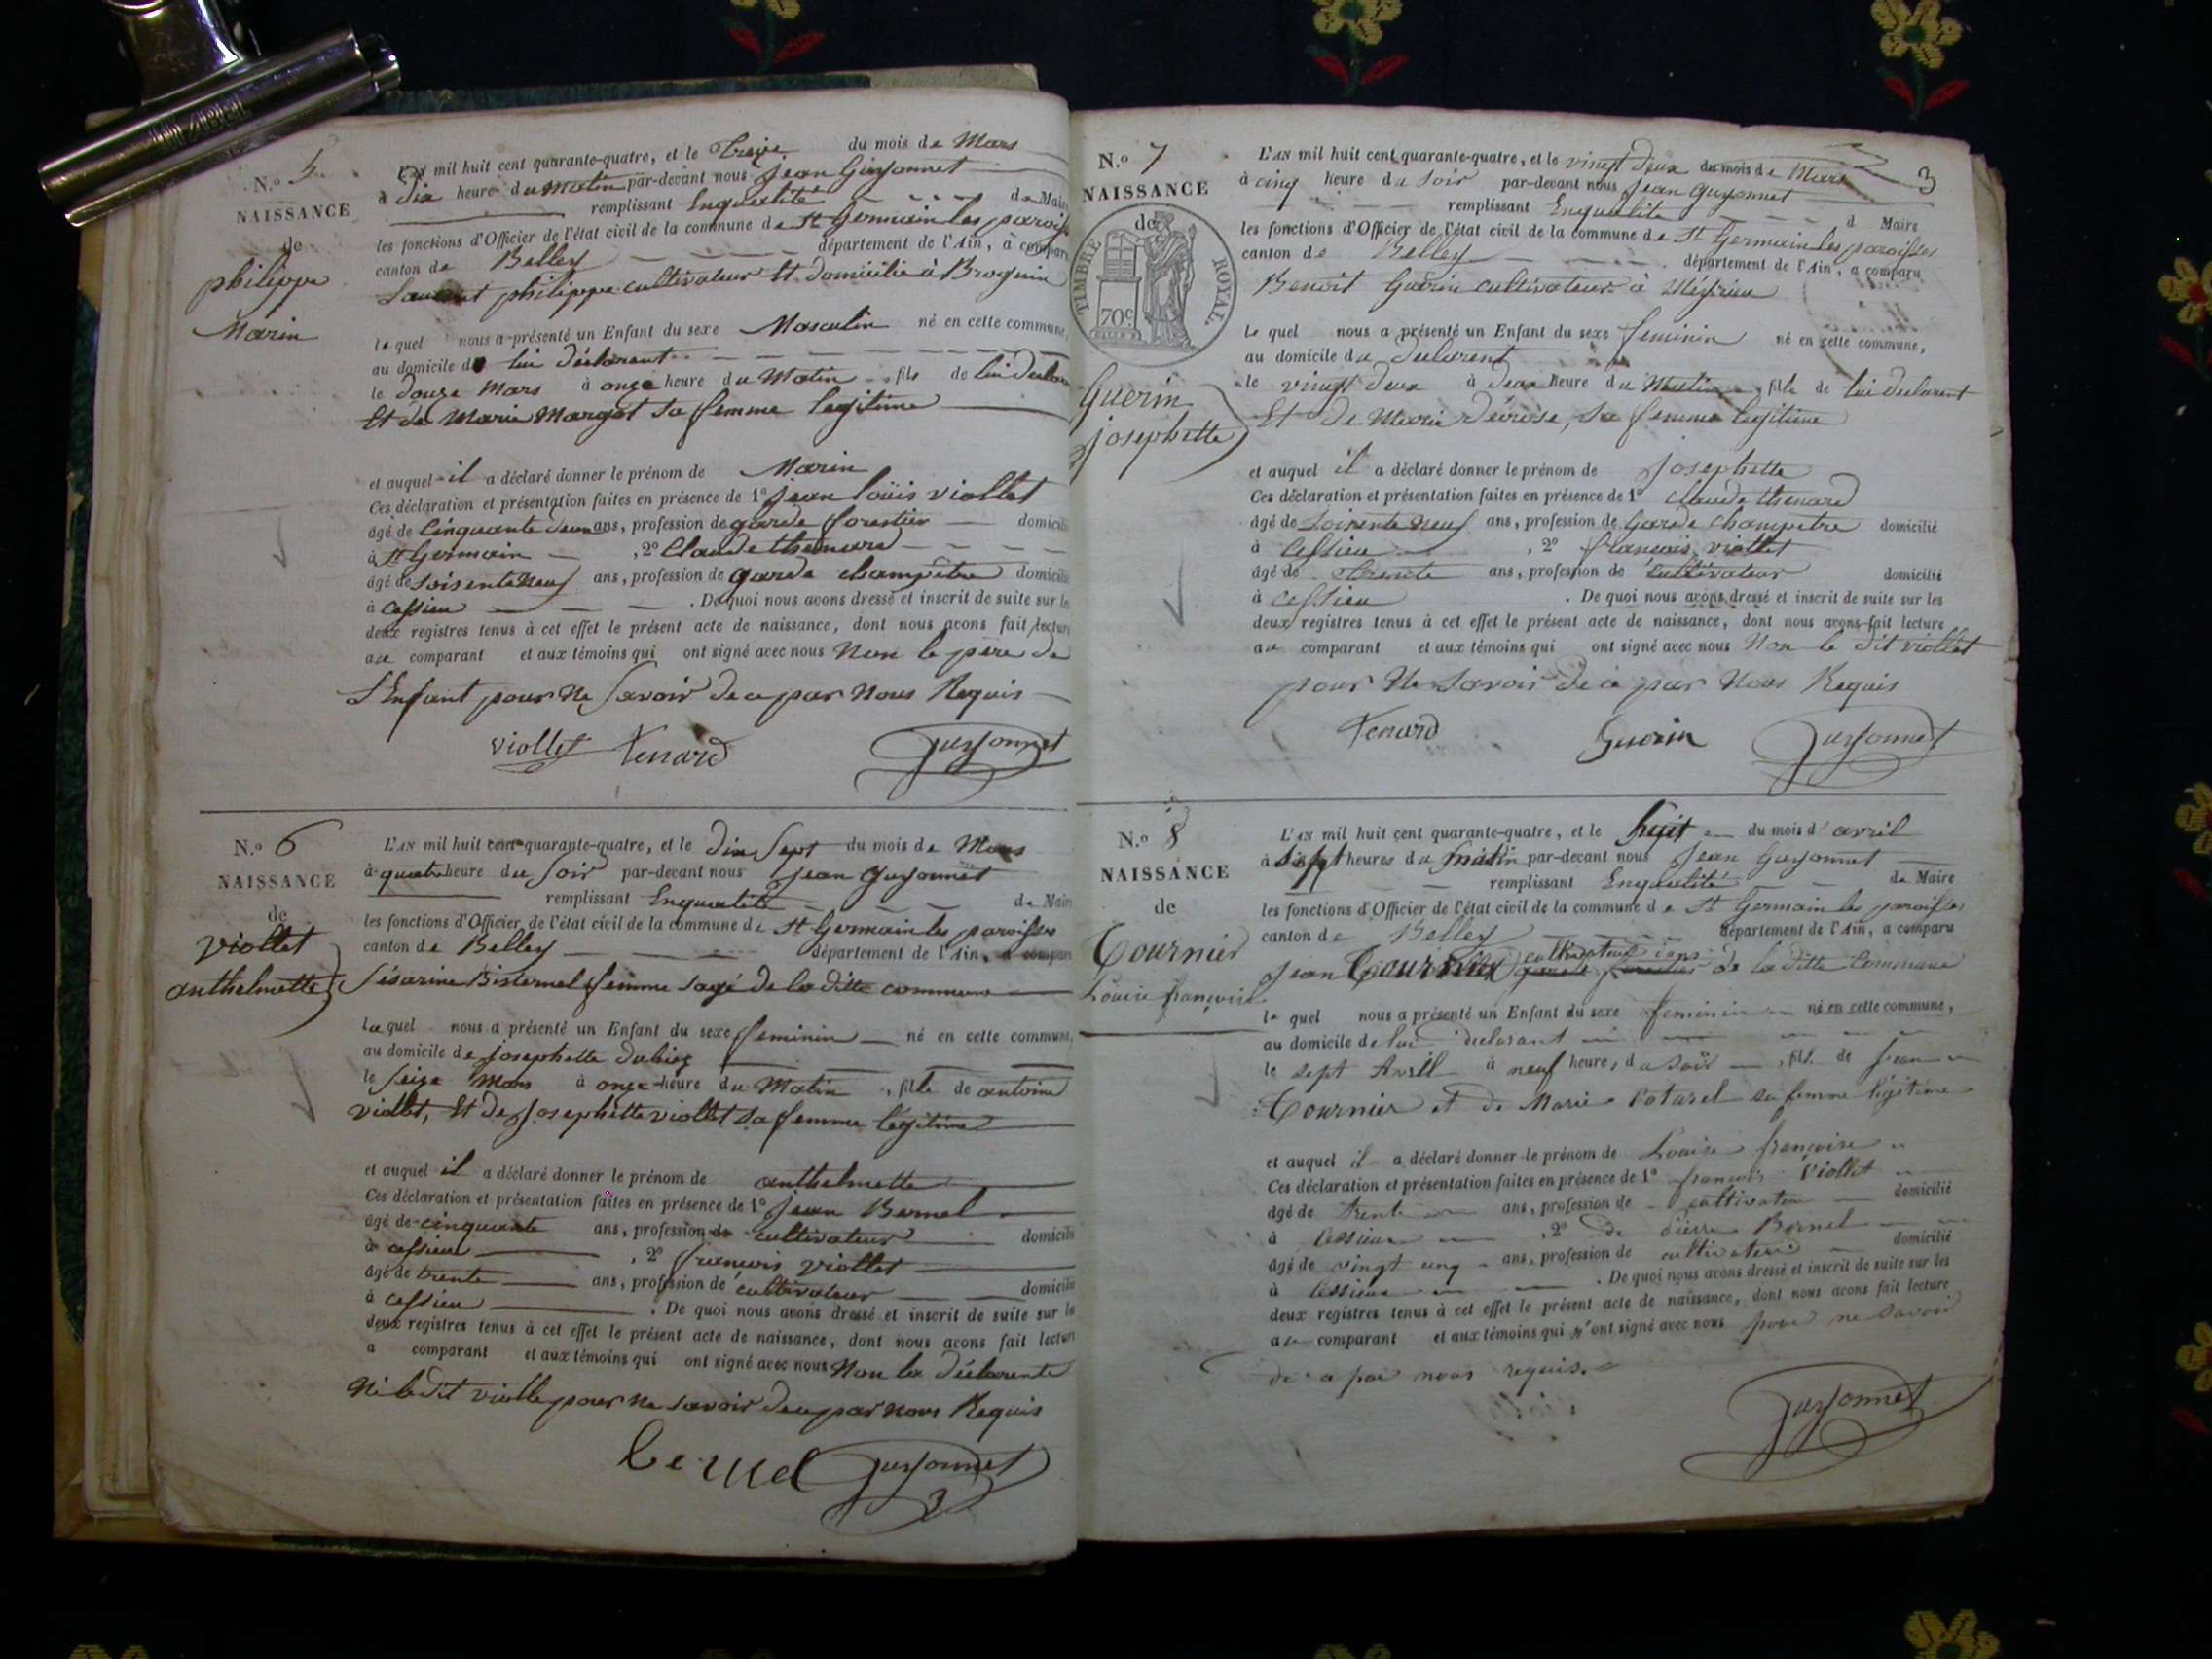 N.o 5.
NAISSANCE
de
philippe
Marin
L'AN mil huit cent quarante-quatre, et le treize du mois de Mars
à dix heure du Matin par-devant nous Jean Guyonnet
remplissant Enqualité de Maire
les fonctions d'Officier de l'état civil de la commune de St Germain les parois
canton de Belley département de l'Ain, à compar
Laurent philippe cultivateur Et domicilié à
le quel nous a présenté un Enfant du sexe Masculin né en cette commune,
au domicile de lui déclarant
le douze Mars à onze heure du Matin, fils de lui déclar
Et de Marie Margot sa femme legitime
et auquel il a déclaré donner le prénom de Marin
Ces déclaration et présentation faites en présence de 1o Jean loüis viollet
âgé de Cinquante deux ans, profession de garde forestier domicilié
à St Germain, 2o Claude thenard
âgé de soisente neuf ans, profession de garde champêtre domicilié
à cessieu. De quoi nous avons dressé et inscrit de suite sur les
deux registres tenus à cet effet le présent acte de naissance, dont nous avons fait lecture
au comparant et aux témoins qui ont signé avec nous Non le père de
L'Enfant pour Ne Savoir de ce par Nous Requis
viollet tenard Guyonnet
N.o 6
NAISSANCE
de
viollet
anthelmette
L'AN mil huit cent quarante-quatre, et le dix Sept du mois de Mars
à quatre heure du Soir par-devant nous Jean Guyonnet
remplissant Enqualité de Maire
les fonctions d'Officier de l'état civil de la commune de St Germain les paroisses
canton de Belley département de l'Ain, a compar
Sésarine femme sage de la ditte commune
la quel nous a présenté un Enfant du sexe feminin né en cette commune,
au domicile de Josephette
le seize Mars à onze heure du Matin, fille de antoine
viollet, Et de Josephette viollet sa femme legitime
et auquel il a déclaré donner le prénom de anthelmette
Ces déclaration et présentation faites en présence de 1o Jean Bernel
âgé de cinquante ans, profession de cultivateur domicilié
à cessieu, 2o francois viollet
âgé de trente ans, profession de cultivateur domicilié
à cessieu. De quoi nous avons dressé et inscrit de suite sur les
deux registres tenus à cet effet le présent acte de naissance, dont nous avons fait lecture
a comparant et aux témoins qui ont signé avec nous Non la déclarente
Ni ledit viollet pour ne savoir de ce par nous Requis
Guyonnet
3
N.o 7
NAISSANCE
de
TIMBRE ROYAL.
70c
Guerin
josephette
L'AN mil huit cent quarante-quatre, et le vingt deux du mois de Mars
à cinq heure du Soir par-devant nous Jean Guyonnet
remplissant Enqualité d Maire
les fonctions d'Officier de l'état civil de la commune de St Germain les paroisses
canton de Belley département de l'Ain, a comparu
Benoit Guerin cultivateur à
le quel nous a présenté un Enfant du sexe feminin né en cette commune,
au domicile du declarent
le vingt deux à deux heure du Matin, fille de lui declarent
Et de Marie sa femme legitime
et auquel il a déclaré donner le prénom de Josephette
Ces déclaration et présentation faites en présence de 1o claude thenard
âgé de soisente neuf ans, profession de Garde champetre domicilié
à Cessieu, 2o francois viollet
âgé de trente ans, profession de cultivateur domicilié
à cessieu. De quoi nous avons dressé et inscrit de suite sur les
deux registres tenus à cet effet le présent acte de naissance, dont nous avons fait lecture
au comparant et aux témoins qui ont signé avec nous Non le dit viollet
pour Ne Savoir de ce par Nous Requis
Tenard Guerin Guyonnet
N.o 8
NAISSANCE
de
Tournier
Louise françoise
L'AN mil huit cent quarante-quatre, et le huit du mois d'avril
à sept heures du matin par-devant nous Jean Guyonnet
remplissant Enqualité de Maire
les fonctions d'Officier de l'état civil de la commune de St Germain les paroisses
canton de Belley département de l'Ain, a comparu
cultivateur
Jean Tournier garde forestier de la ditte Commune
le quel nous a présenté un Enfant du sexe feminin né en cette commune,
au domicile de lui declarant
le sept Avril à neuf heures du soir, fille de Jean
Tournier et de Marie sa femme légitime
et auquel il a déclaré donner le prénom de Louise françoise
Ces déclaration et présentation faites en présence de 1o françois Viollet
âgé de trente ans, profession de cultivateur domicilié
à Cessieu, 2o de Pierre Bernel
âgé de vingt ans, profession de cultivateur domicilié
à Cessieu. De quoi nous avons dressé et inscrit de suite sur les
deux registres tenus à cet effet le présent acte de naissance, dont nous avons fait lecture
au comparant et aux témoins qui n'ont signé avec nous pour ne savoir
de ce par nous requis.
Guyonnet